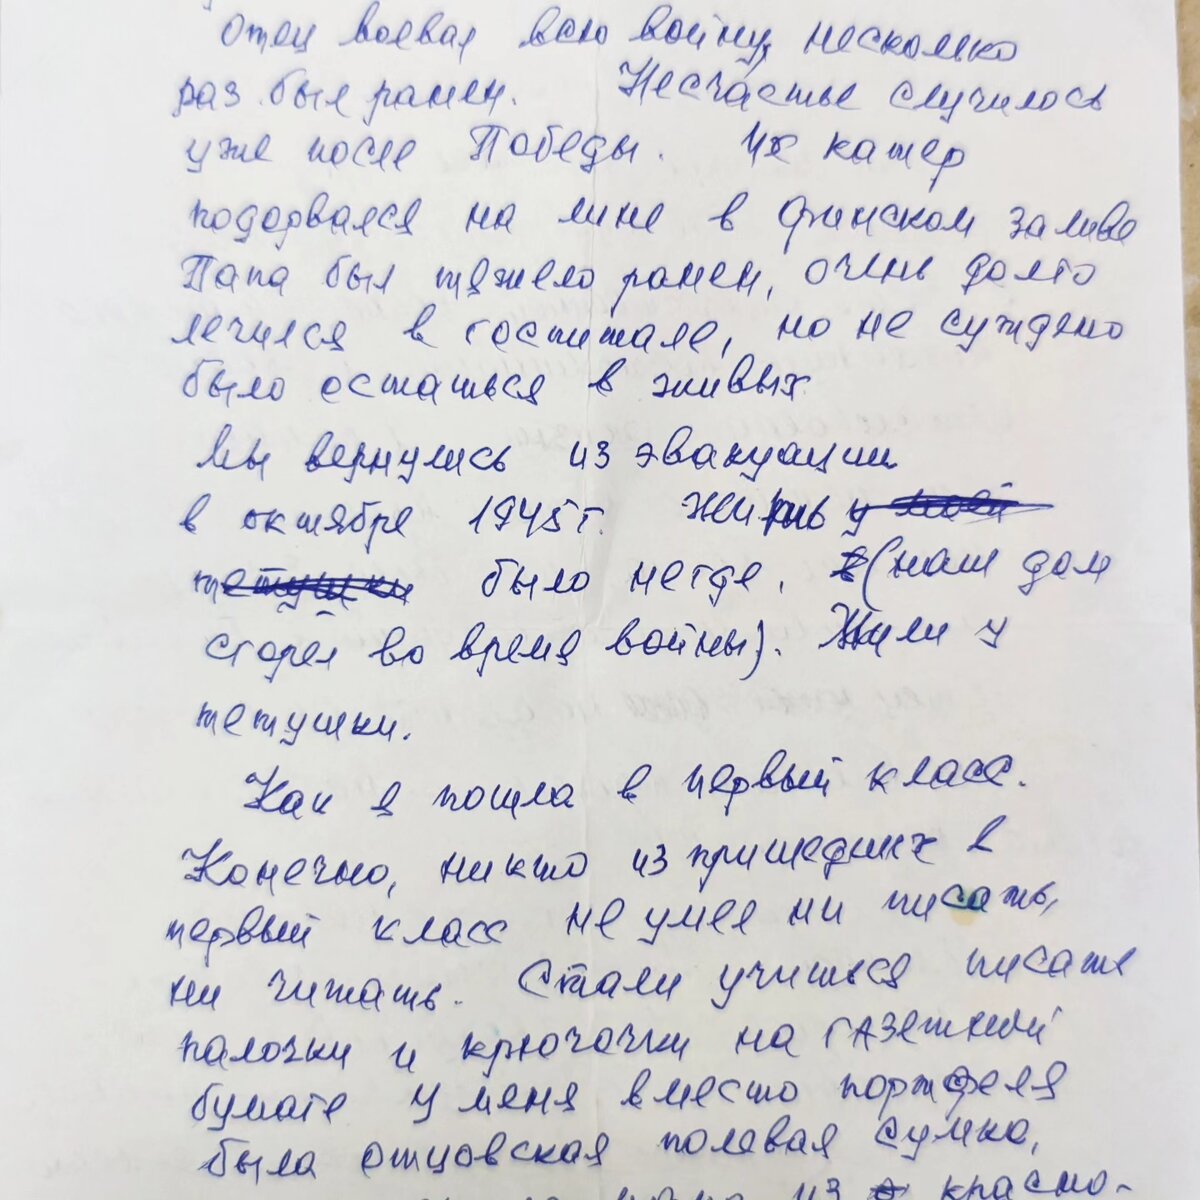 Отец воевал всю войну, несколько
раз был ранен. Несчастье случилось
уже после Победы. Их катер
подорвался на мине в Финском заливе
Папа был тяжело ранен, очень долго
лечился в госпитале, но не суждено
было остаться в живых
Мы вернулись из эвакуации
в октябре 1945г. Жить у моей
тетушки было негде. (наш дом
сгорел во время войны). Жили у
тетушки.
Как я пошла в первый класс.
Конечно, никто из пришедших в
первый класс не умел ни писать,
ни читать. Стали учиться писать
палочки и крючочки на газетной
бумаге У меня вместо портфеля
была отцовская полевая сумка,
из красно-